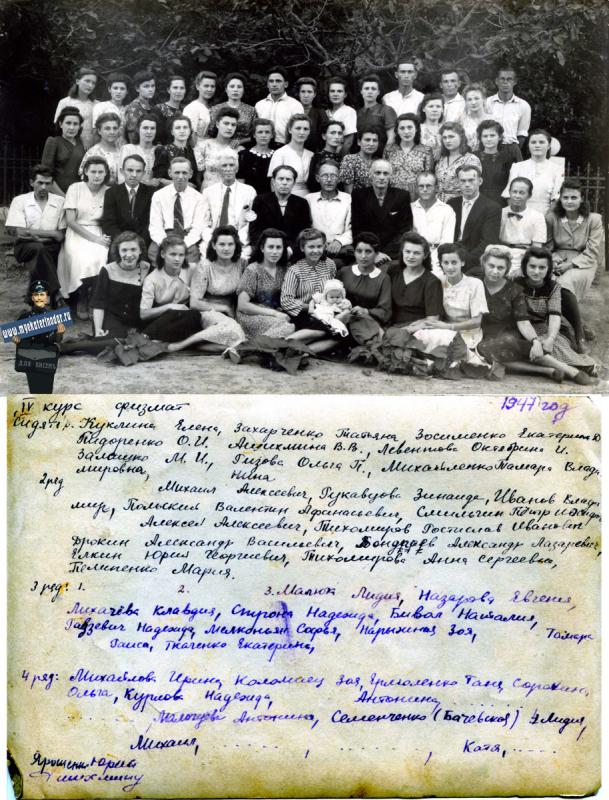 www.myekaterinodar.ru
ДЛЯ ПИСЕМ
IV курс физмат 1947 год
Сидят: 1 р. Куклина Елена, Захарченко Татьяна Зосименко Екатерина
Падоренко О.И. Анихмина В.В., Левентова Октябрина И.
М.И., Гизова Ольга П., Михайленко Тамара Влади
мировна, Нина
2 ряд Михаил Алексеевич, Рукавцова Зинаида, Иванов Влади
мир, Польский Валентин Афанасьевич, Смильгин Пётр
Алексей Алексеевич, Тихомиров Ростислав Иванович
Дрокин Александр Васильевич, Бондарев Александр Лазаревич,
Ёлкин Юрий Георгиевич, Тихомирова Анна Сергеевна,
Пелипенко Мария.
3 ряд: 1. 2. 3. Малюк Лидия, Назарова Евгения,
Лихачёва Клавдия, Спирона Надежда, Бивал Наталия,
Гавзевич Надежда, Мелконьян Софья, Нарыжная Зоя, Тамара
Раиса, Ткаченко Екатерина,
4 ряд: Михайлова Ирина Коломиец Зоя, Ермоленко Таня Сорокина
Ольга, Курлова Надежда, Антонина
Антонина, Семенченко (Бачевская) Лидия,
Михаил, Катя,
Ярошенко Юрий